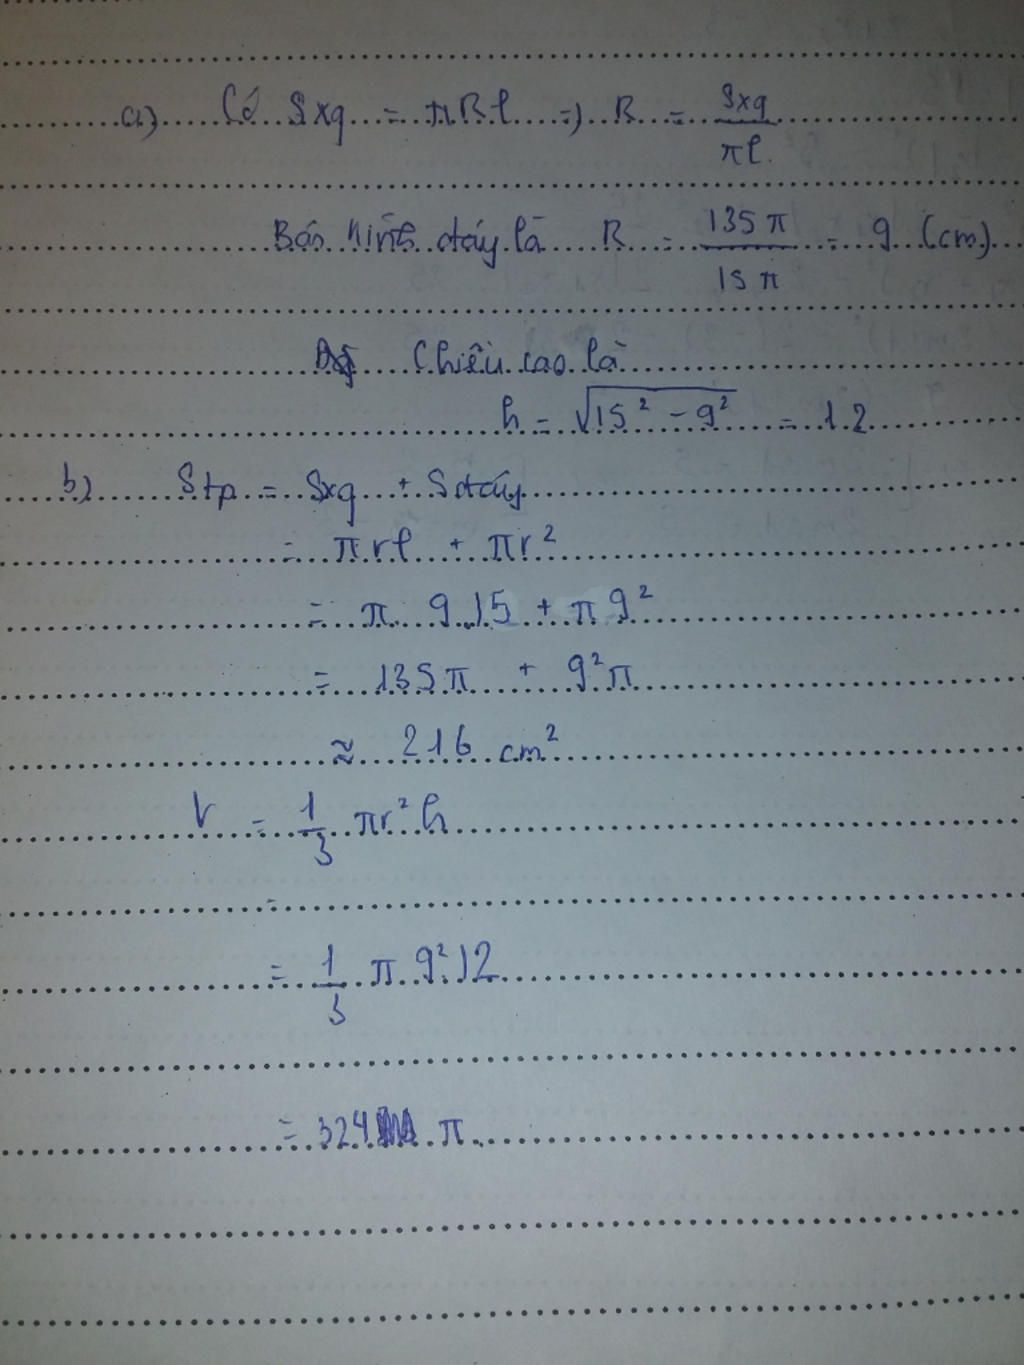 a) Có Sxq = πRl => R = Sxq / πl
Bán kính đáy là R = 135π / 15π = 9 (cm)
Chiều cao là
h = √15² - 9² = 12
b) Stp = Sxq + Sđáy
= πrl + πr²
= π 9.15 + π9²
= 135π + 9²π
≈ 216 cm²
V = 1/3 πr²h
=
= 1/3 π 9² 12
= 324 π